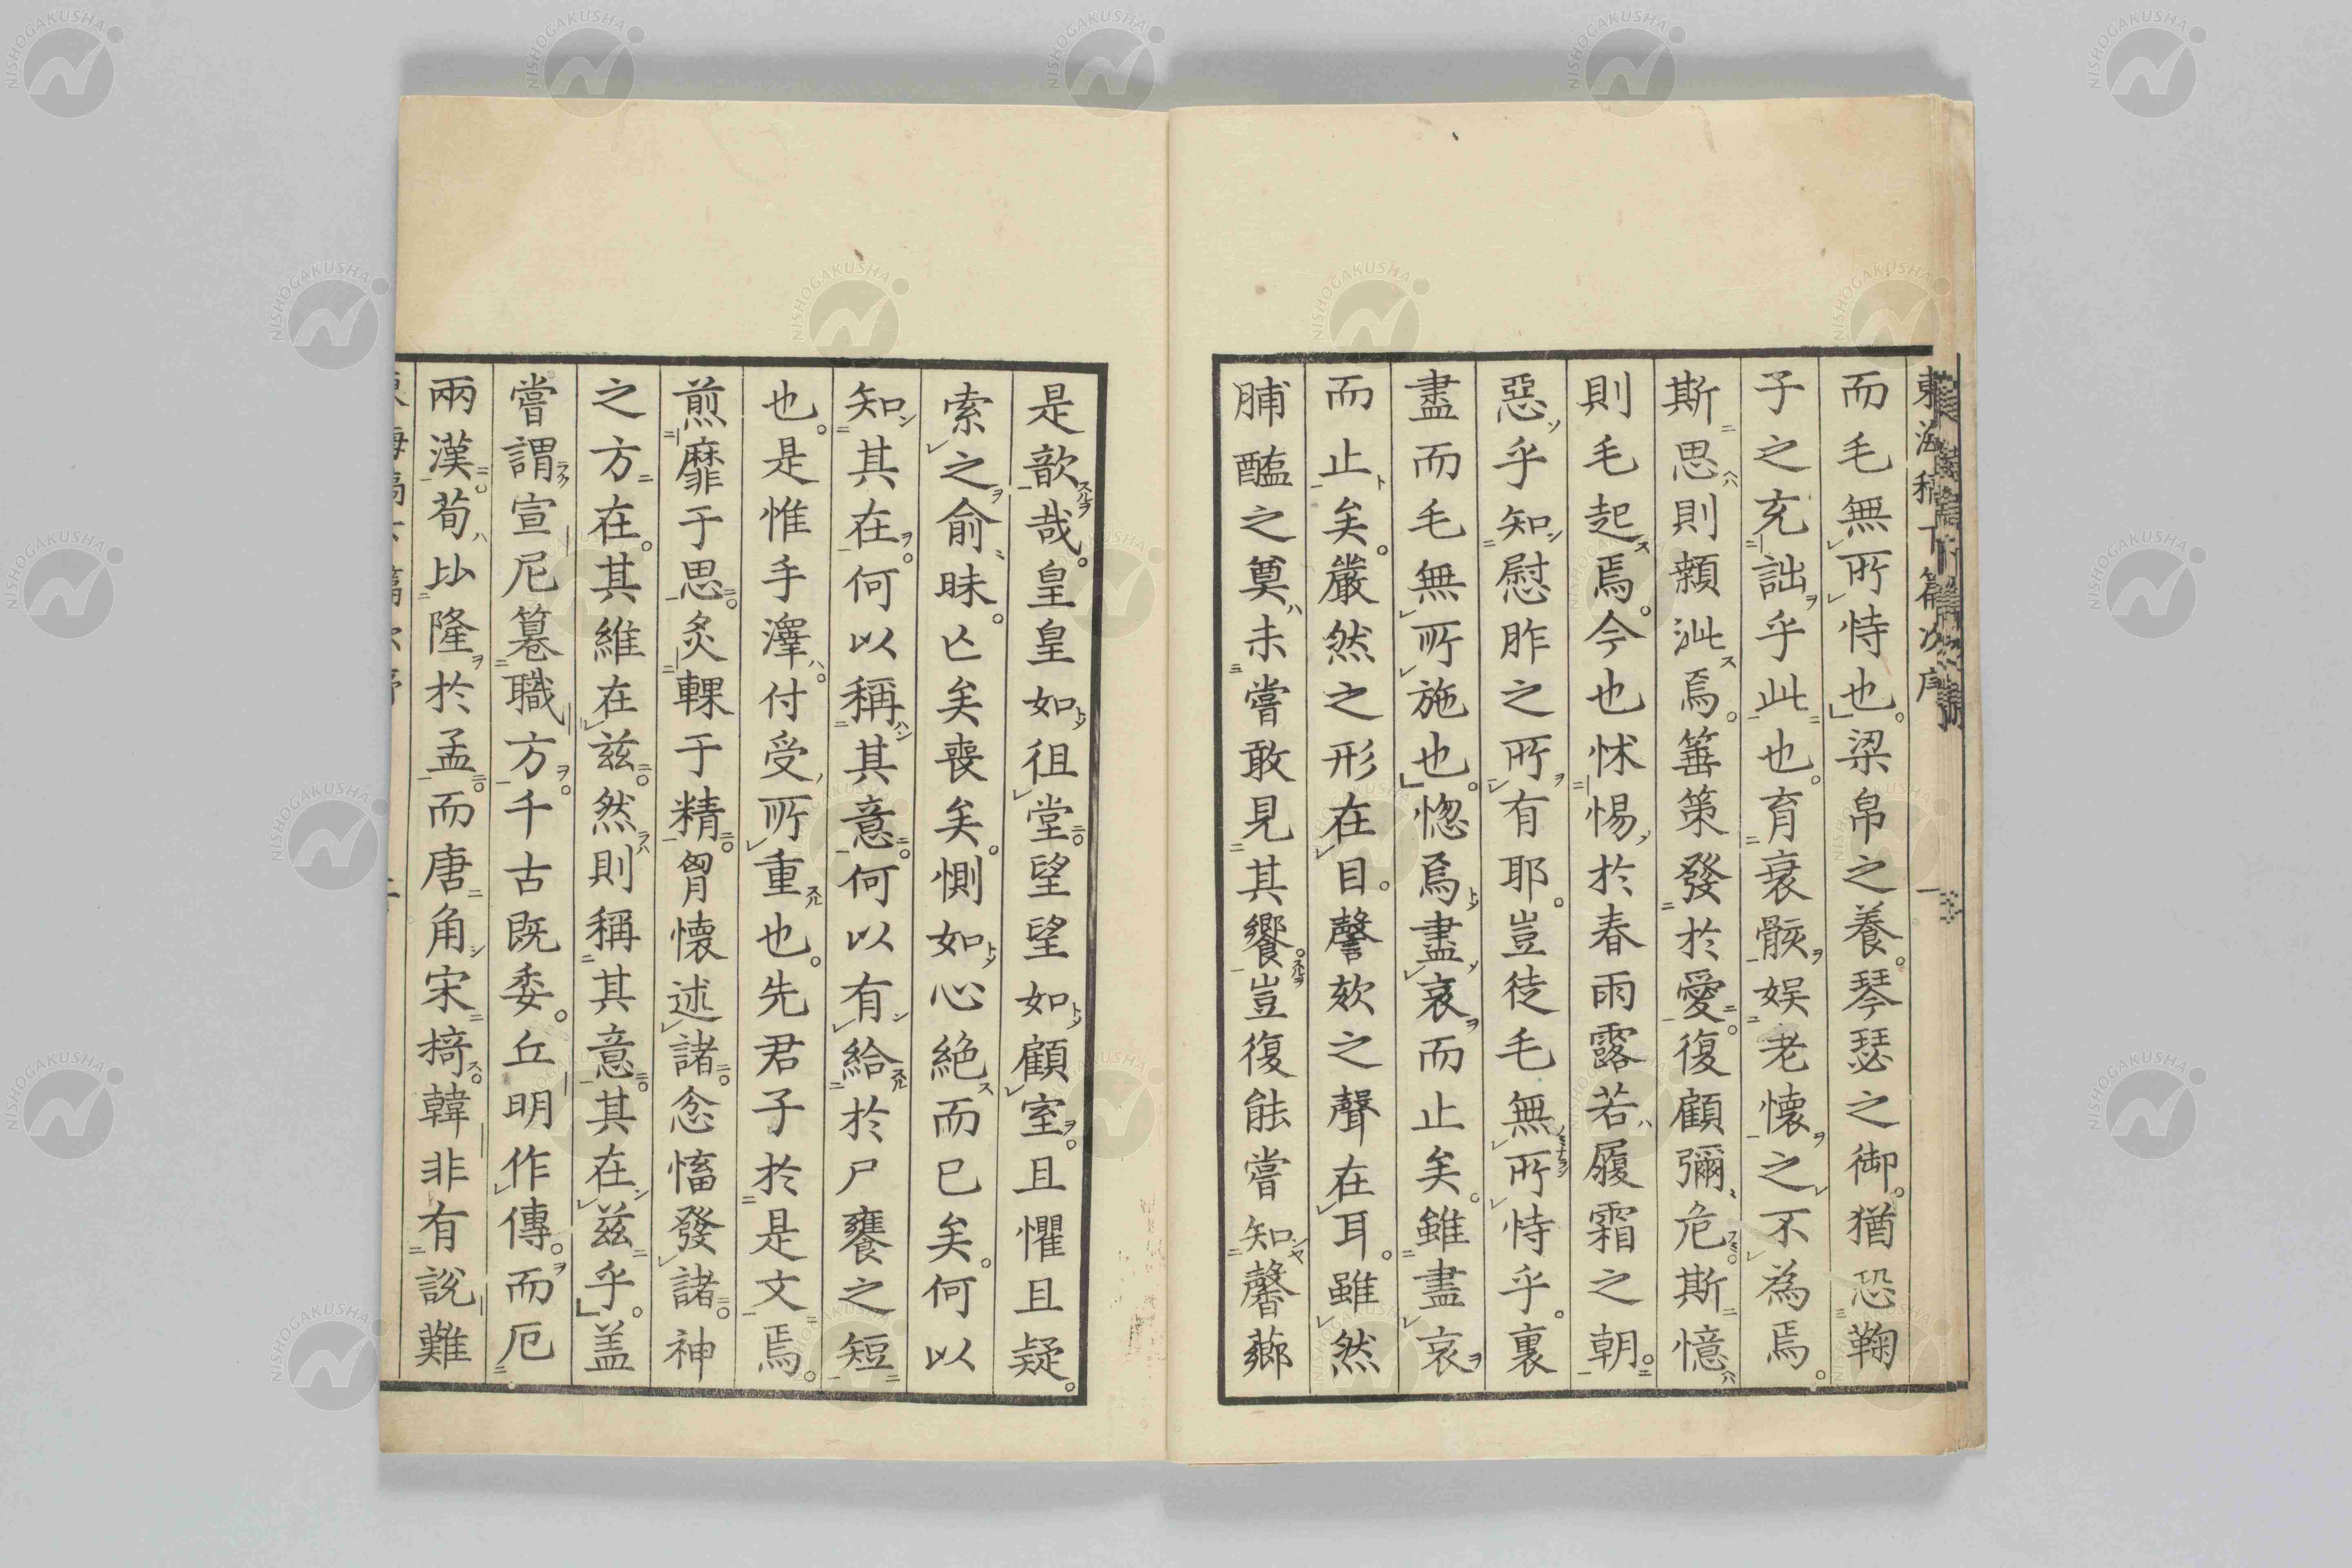 而毛無所恃也。梁帛之養。琴瑟之御。猶恐鞠
子之充詘乎此也。育衰骸娯老懷之不為焉。
斯思則顙泚焉。箠策發於愛。復顧彌危斯憶
則毛起焉。今也怵惕於春雨露若履霜之朝。
惡乎知慰昨之所有耶。豈徒毛無所恃乎。裏
盡而毛無所施也。惚焉盡哀而止矣。雖盡哀
而止矣。嚴然之形在目。謦欬之聲在耳。雖然
脯醢之奠未嘗敢見其饗。豈復能嘗知馨薌
是歆哉。皇皇如徂堂。望望如顧室。且懼且疑。
索之俞昧。亡矣喪矣。惻如心絶而已矣。何以
知其在。何以稱其意。何以有給於尸饔之短
也。是惟手澤。付受所重也。先君子於是文焉。
煎靡于思。炙輠于精。胷懷述諸。念慉發諸。神
之方在。其維在茲。然則稱其意。其在茲乎。盖
嘗謂宣尼簒職方。千古既委。丘明作傳。而厄
兩漢。荀比隆於孟。而唐角宋掎。韓非有說難
NISHOGAKUSHA